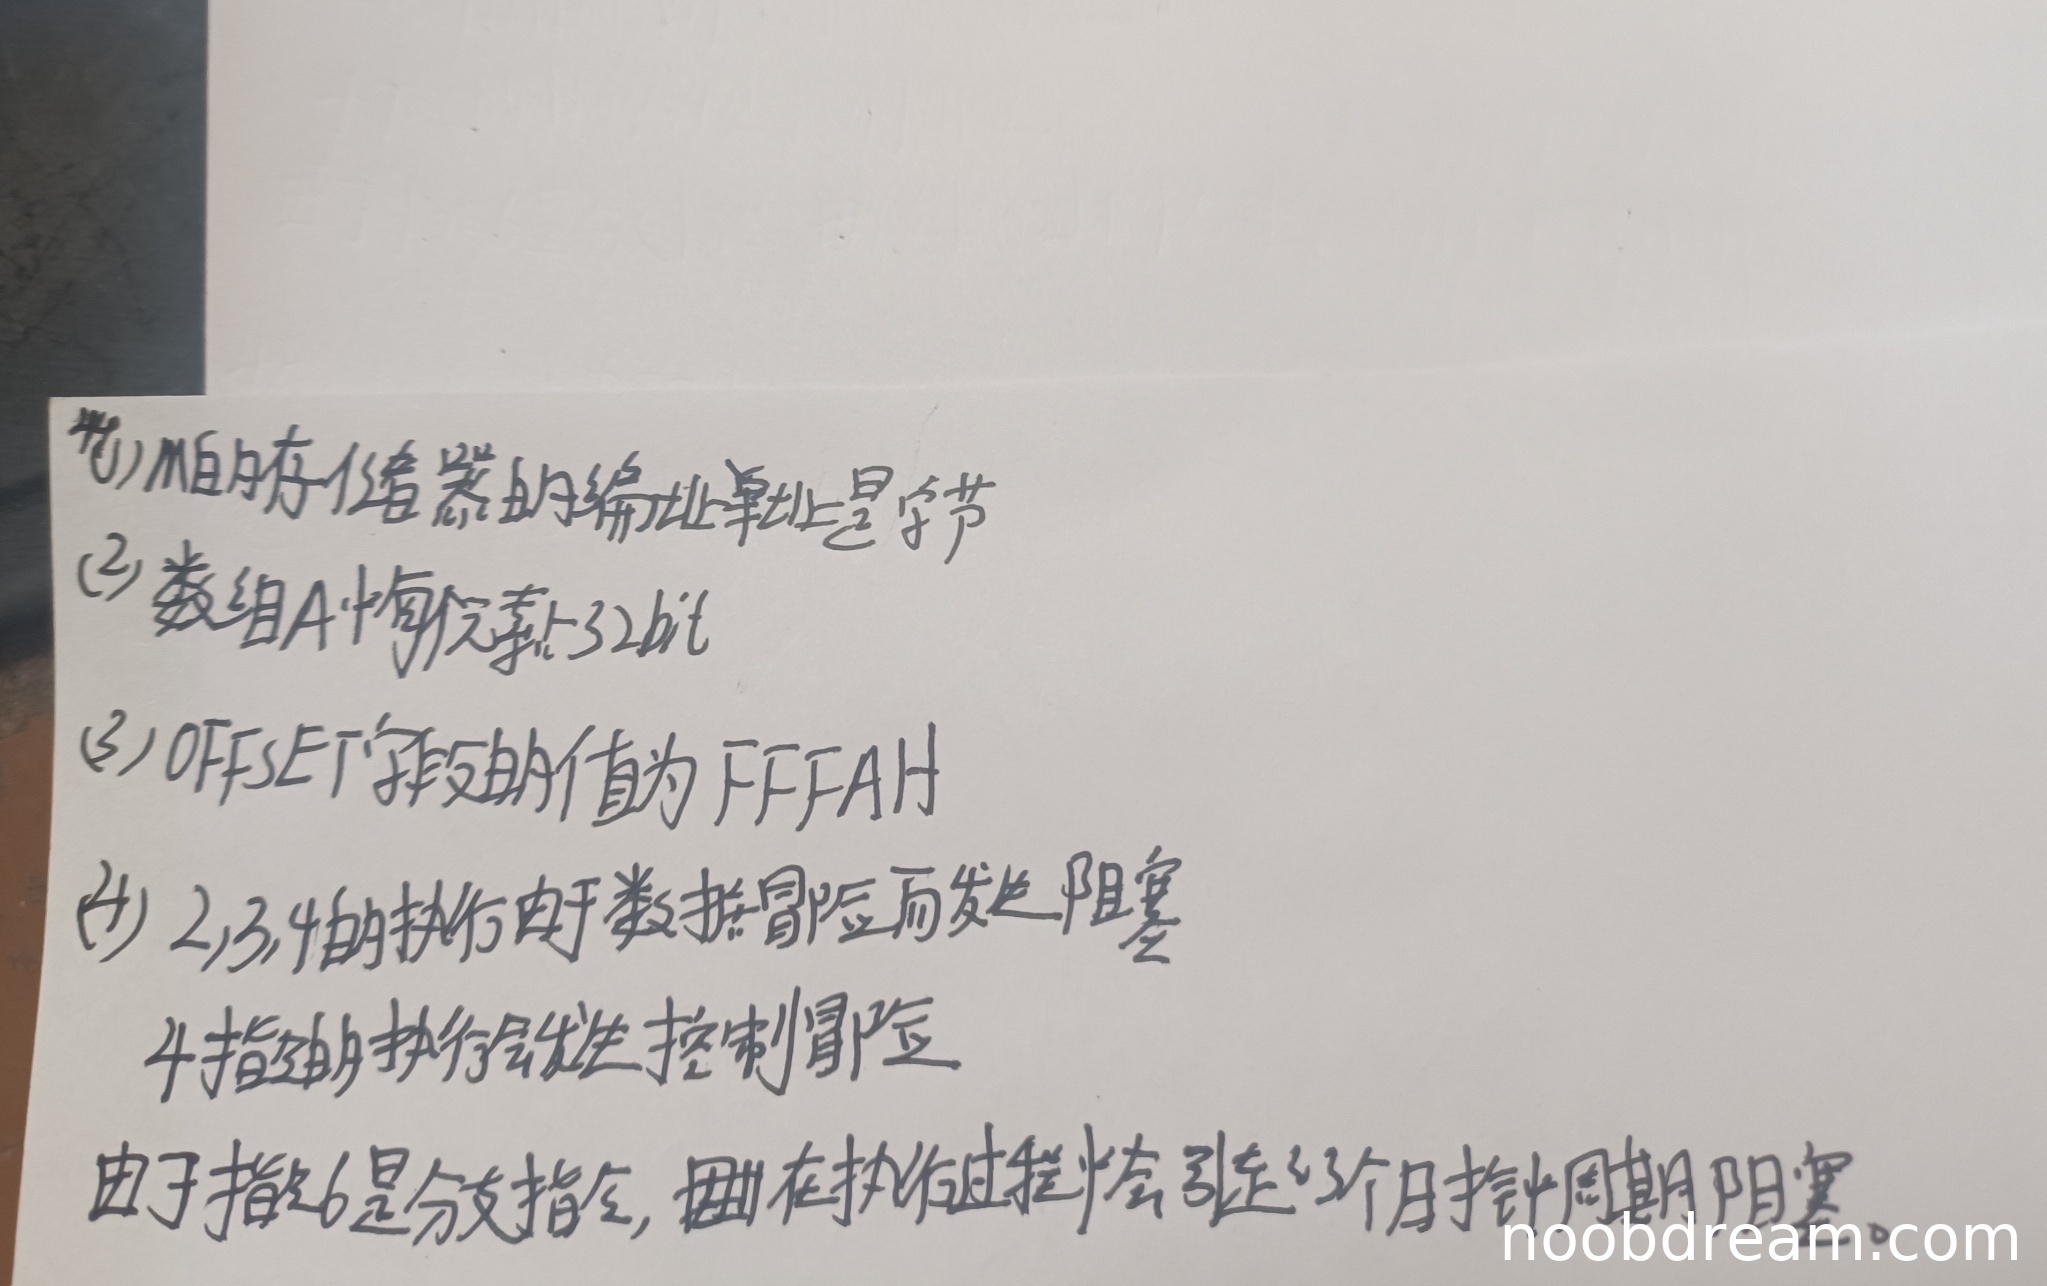 (1) M的存储器的编址单址是字节
(2) 数组A中每个元素占32bit
(3) OFFSET字段的值为FFFAH
(4) 2,3,4的执行由于数据冒险而发生阻塞
4指令的执行会发生控制冒险
由于指令6是分支指令, 在执行过程中会引起3个时钟周期阻塞。
noobdream.com